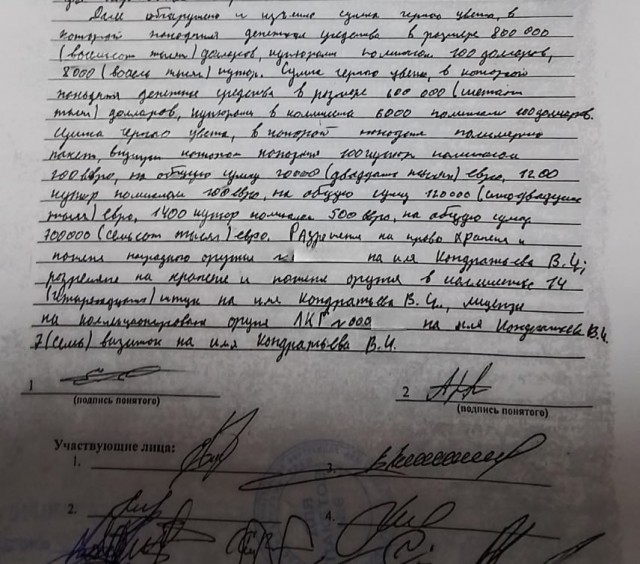 Далее обнаружено и изъято сумка черного цвета, в
которой находятся денежные средства в размере 800 000
(восемьсот тысяч) долларов, купюрами номиналом 100 долларов,
8000 (восемь тысяч) купюр. Сумка черного цвета, в которой
находятся денежные средства в размере 600 000 (шестьсот
тысяч) долларов, купюрами в количестве 6000 номиналом 100 долларов.
Сумка черного цвета, в которой находится полимерный
пакет, внутри которого находятся 100 купюр номиналом
200 евро, на общую сумму 20000 (двадцать тысяч) евро, 1200
купюр номиналом 100 евро, на общую сумму 120000 (сто двадцать
тысяч) евро, 1400 купюр номиналом 500 евро, на общую сумму
700000 (семьсот тысяч) евро. Разрешения на право хранения и
ношения наградного оружия на имя Кондратьева В.Ч.;
разрешение на хранение и ношение оружия в количестве 14
(четырнадцати) штук на имя Кондратьева В.Ч., лицензия
на коллекционирование оружия ЛКГ №000 на имя Кондратьева В.Ч.
7 (семь) визиток на имя Кондратьева В.Ч.
1 2
(подпись понятого) (подпись понятого)
Участвующие лица:
1. 3.
2. 4.